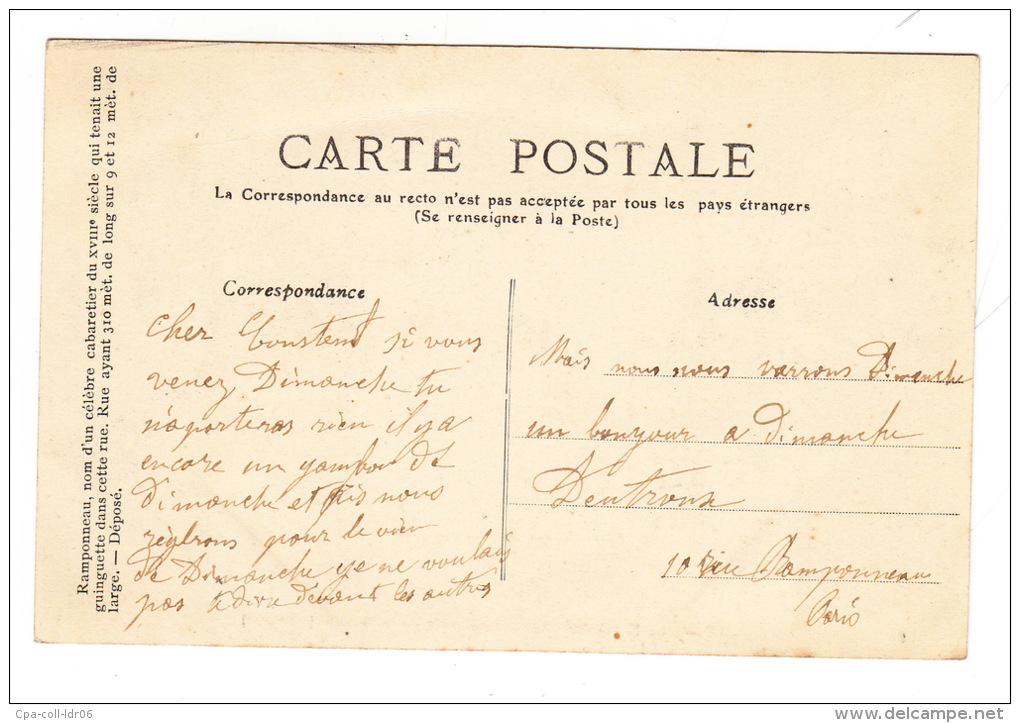 Ramponneau, nom d'un célèbre cabaretier du XVIIIe siècle qui tenait une
guinguette dans cette rue. Rue ayant 310 mèt. de long sur 9 et 12 mèt. de
large. — Déposé.
CARTE POSTALE
La Correspondance au recto n'est pas acceptée par tous les pays étrangers
(Se renseigner à la Poste)
Correspondance
Cher Constent si vous
venez Dimanche tu
n'aporteras rien il y a
encore un yambon de
dimanche et puis nous
règlrons pour le vien
de Dimanche ye ne voulais
pas te dire devant les autres
Adresse
Mais nous nous varrons Dimanche
un bonyour a dimanche
10 rue Ramponneau
Paris
Cpa-coll-ldr06
www.delcampe.net